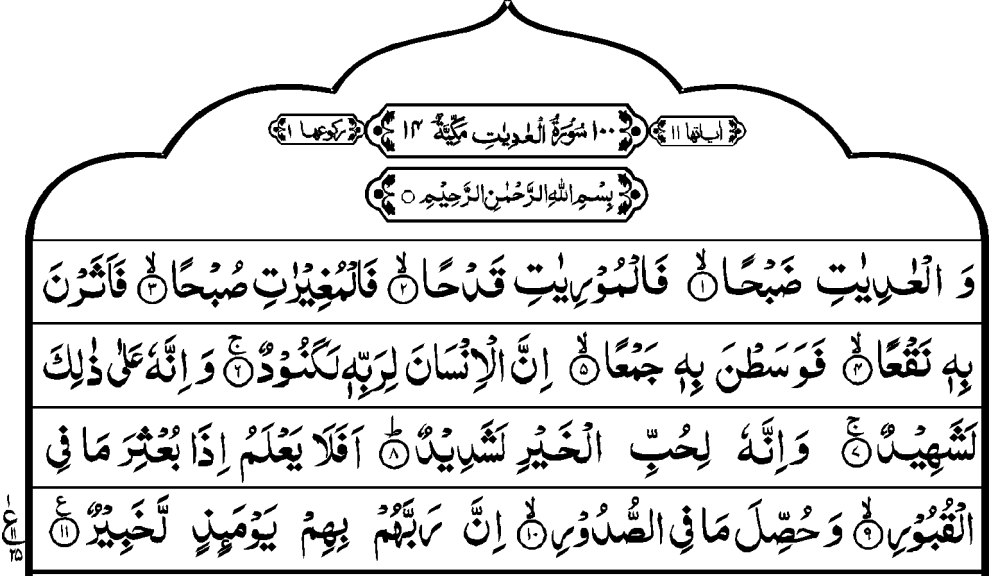 اٰیاتھا ۱۱ ۱۰۰ سُوْرَۃُ الْعٰدِیٰتِ مَکِّیَّۃٌ ۱۴ رکوعھا ۱
بِسْمِ اللّٰهِ الرَّحْمٰنِ الرَّحِیْمِ ○
وَ الْعٰدِیٰتِ ضَبْحًا ۙ۱ فَالْمُوْرِیٰتِ قَدْحًا ۙ۲ فَالْمُغِیْرٰتِ صُبْحًا ۙ۳ فَاَثَرْنَ
بِهٖ نَقْعًا ۙ۴ فَوَسَطْنَ بِهٖ جَمْعًا ۙ۵ اِنَّ الْاِنْسَانَ لِرَبِّهٖ لَكَنُوْدٌ ۚ۶ وَ اِنَّهٗ عَلٰی ذٰلِكَ
لَشَهِیْدٌ ۚ۷ وَ اِنَّهٗ لِحُبِّ الْخَیْرِ لَشَدِیْدٌ ؕ۸ اَفَلَا یَعْلَمُ اِذَا بُعْثِرَ مَا فِی
الْقُبُوْرِ ۙ۹ وَ حُصِّلَ مَا فِی الصُّدُوْرِ ۙ۱۰ اِنَّ رَبَّهُمْ بِهِمْ یَوْمَىِٕذٍ لَّخَبِیْرٌ ۧ۱۱
ع ۱۱ ۲۵